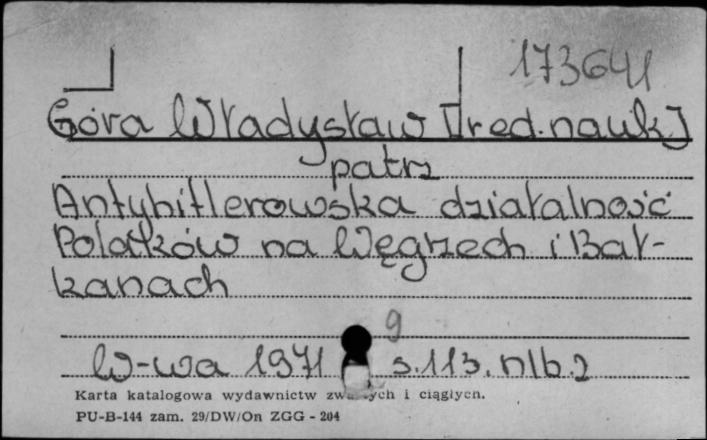 173641
Góra Władysław [red. nauk.]
patrz
Antyhitlerowska działalność
Polaków na Węgrzech i Bał-
kanach
9
W-wa 1971 s. 113. nlb. 2
Karta katalogowa wydawnictw zw ych i ciągłych.
PU-B-144 zam. 29/DW/On ZGG - 204